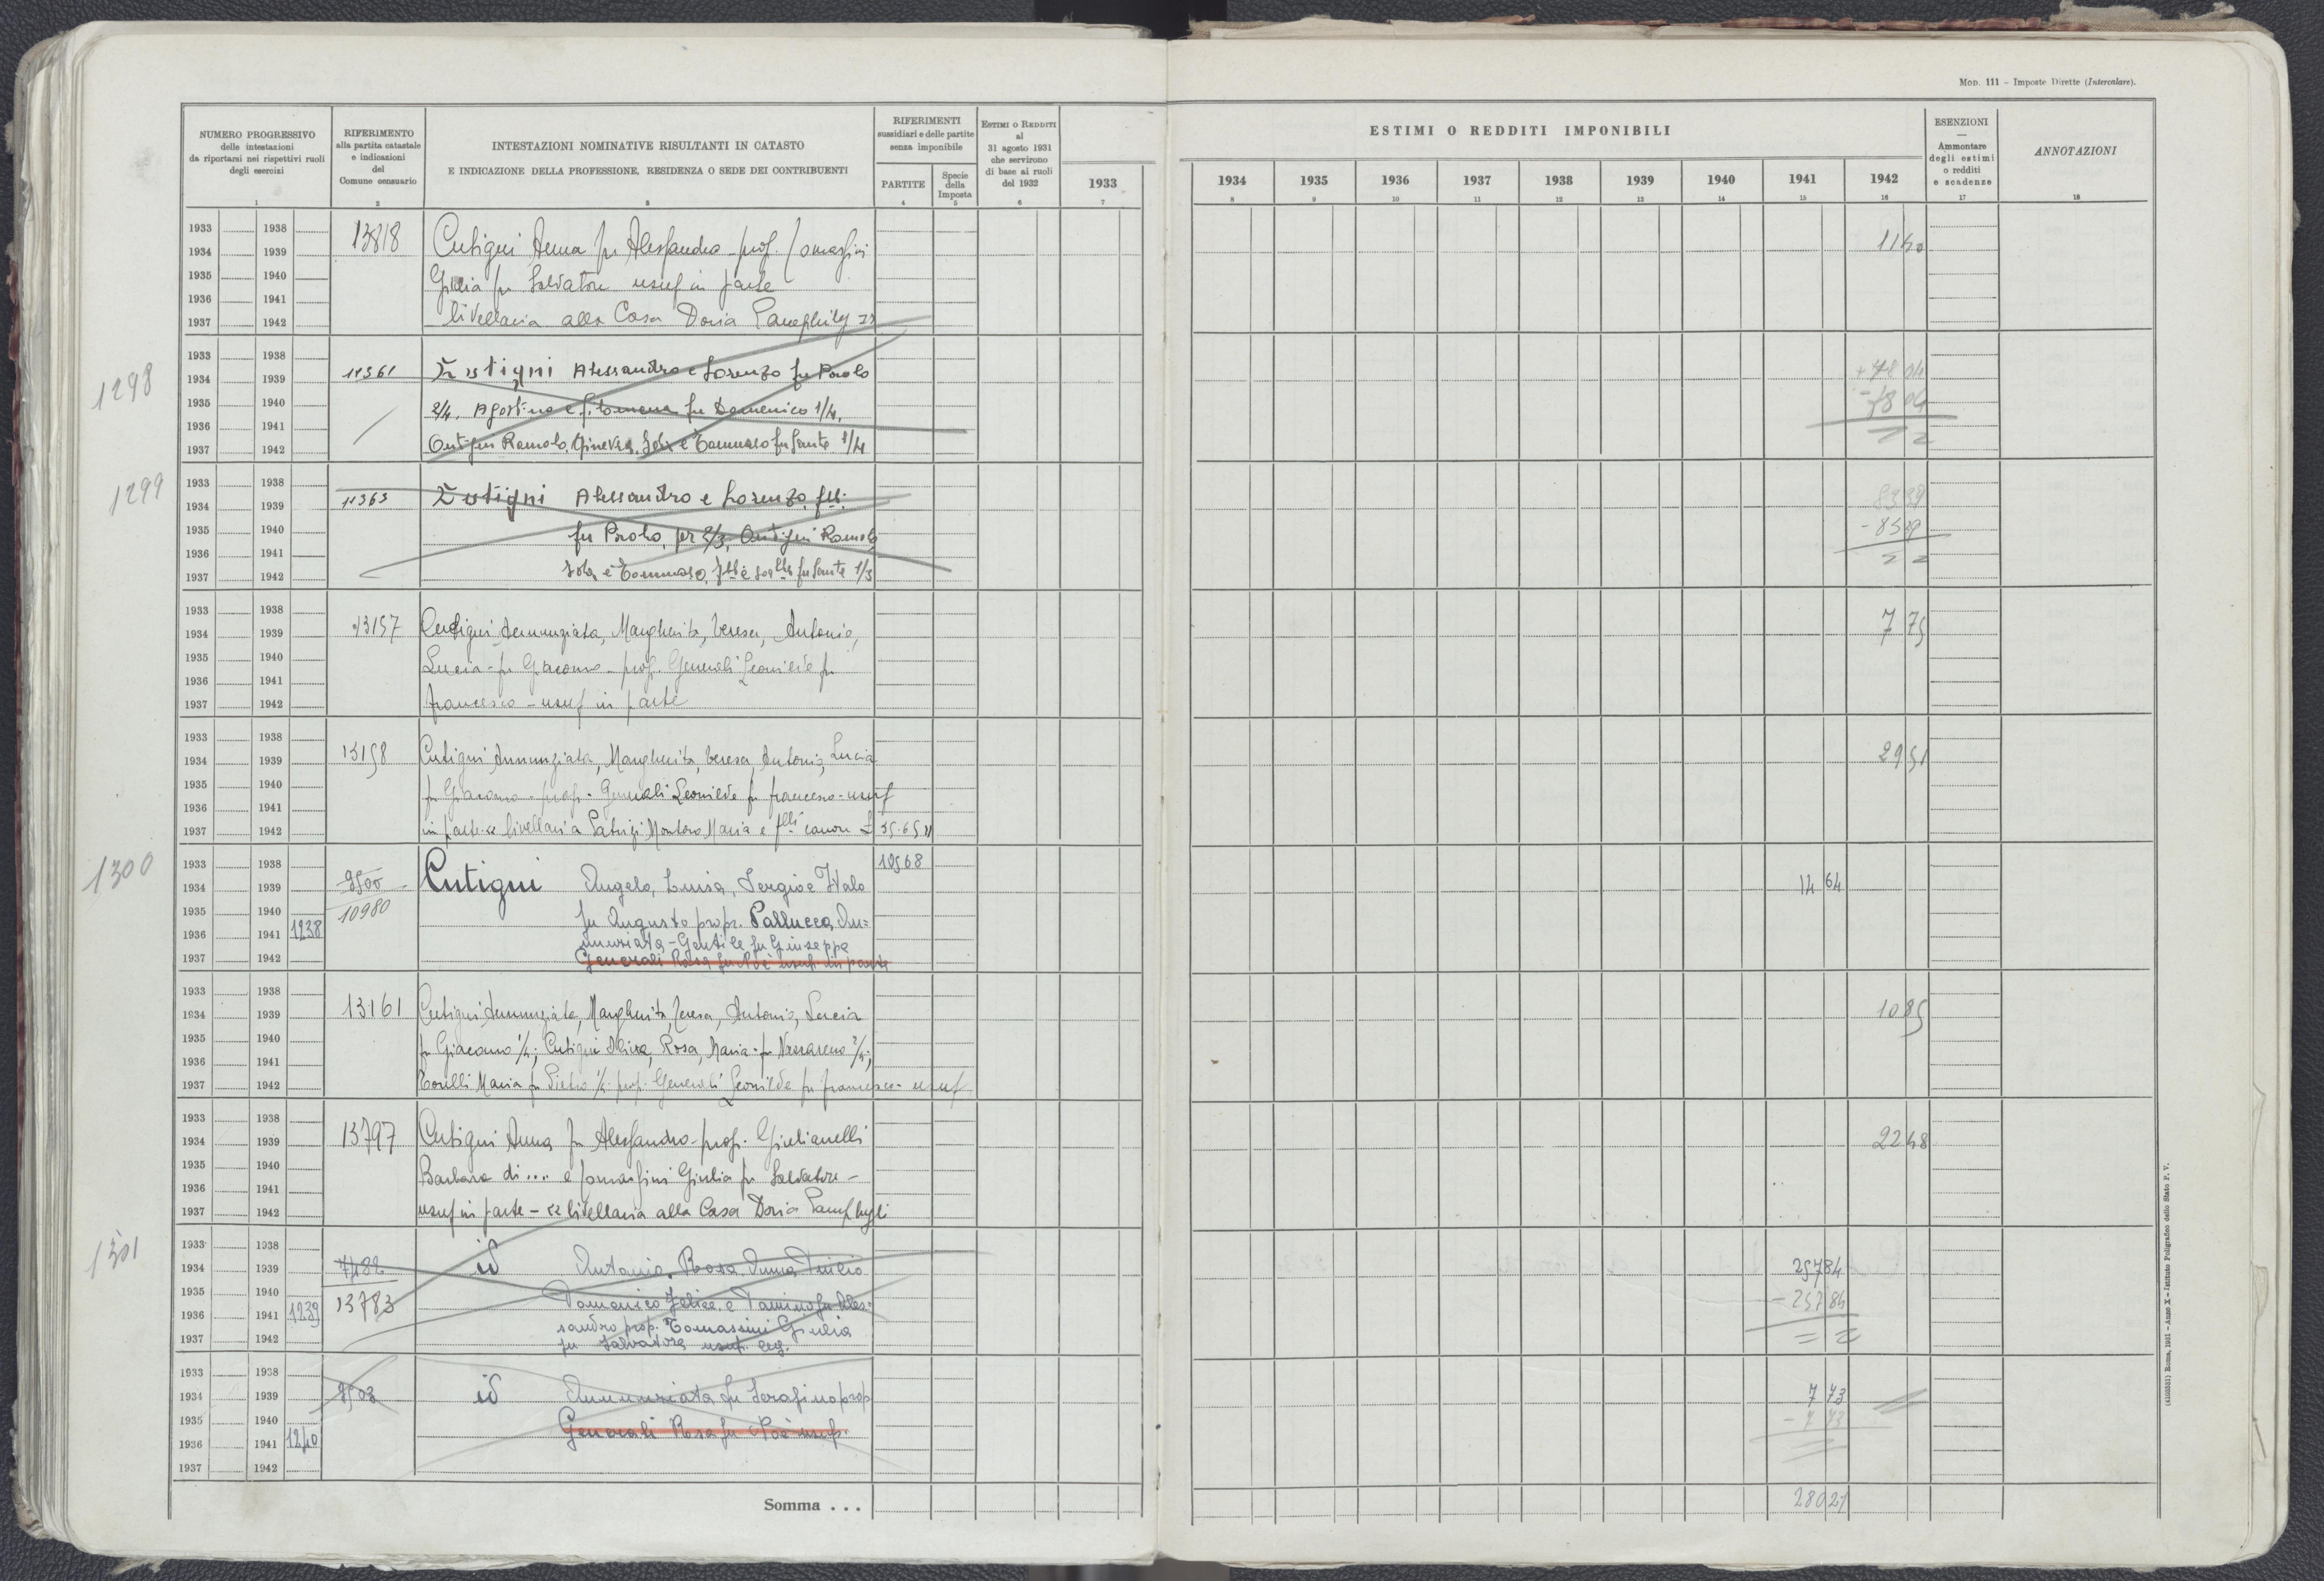 Mod. 111 – Imposte Dirette (Intercalare).
NUMERO PROGRESSIVO
delle intestazioni
da riportarsi nei rispettivi ruoli
degli esercizi
RIFERIMENTO
alla partita catastale
e indicazioni
del
Comune censuario
INTESTAZIONI NOMINATIVE RISULTANTI IN CATASTO
E INDICAZIONE DELLA PROFESSIONE, RESIDENZA O SEDE DEI CONTRIBUENTI
RIFERIMENTI
sussidiari e delle partite
senza imponibile
PARTITE
Specie
della
Imposta
Estimi o Redditi
al
31 agosto 1931
che servirono
di base ai ruoli
del 1932
ESTIMI O REDDITI IMPONIBILI
1933 1934 1935 1936 1937 1938 1939 1940 1941 1942
ESENZIONI
—
Ammontare
degli estimi
o redditi
e scadenze
ANNOTAZIONI
1 2 3 4 5 6 7 8 9 10 11 12 13 14 15 16 17 18
1933 1938
1934 1939
1935 1940
1936 1941
1937 1942
13818 Cutigni Anna fu Alessandro - prop. Tomassini
Giulia fu Salvatore usuf in parte
livellaria alla Casa Doria Pamphily
11 40
1298
1933 1938
1934 1939
1935 1940
1936 1941
1937 1942
11361 Cutigni Alessandro e Lorenzo fu Paolo
2/4, Agostino e Filomena fu Domenico 1/4,
Cutigni Romolo, Ginevra, Iole e Tommaso fu Sante 1/4
+ 78 04
- 78 04
1299
1933 1938
1934 1939
1935 1940
1936 1941
1937 1942
11363 Cutigni Alessandro e Lorenzo flli
fu Paolo, per 2/3, Cutigni Romolo
Iole e Tommaso, flli e sorelle fu Sante 1/3
83 39
- 83 39
1933 1938
1934 1939
1935 1940
1936 1941
1937 1942
13157 Cutigni Annunziata, Margherita, Teresa, Antonia,
Lucia fu Giacomo - prop. Generali Leonilde fu
Francesco - usuf in parte
7 75
1933 1938
1934 1939
1935 1940
1936 1941
1937 1942
13158 Cutigni Annunziata, Margherita, Teresa, Antonia, Lucia
fu Giacomo - prop. - Generali Leonilde fu Francesco - usuf
in parte livellaria Patrizi Montoro Maria e flli canone £ 35.65
29 51
1300
1933 1938
1934 1939
1935 1940
1936 1941 1238
1937 1942
9500
10980
Cutigni Angelo, Luisa, Sergio e Italo
fu Augusto propr. Pallucca An=
nunziata - Gentile fu Giuseppe
Generali Rosa fu Noè usuf. in parte
10568
14 64
1933 1938
1934 1939
1935 1940
1936 1941
1937 1942
13161 Cutigni Annunziata, Margherita, Teresa, Antonia, Lucia
fu Giacomo 1/4; Cutigni Rosa, Maria fu Nazzareno 2/4;
Torelli Maria fu Pietro 1/4 prop. Generali Leonilde fu Francesco - usuf
10 85
1933 1938
1934 1939
1935 1940
1936 1941
1937 1942
13797 Cutigni Anna fu Alessandro - prop. Giulianelli
Barbara di .... e Tomassini Giulia fu Salvatore -
usuf in parte - livellaria alla Casa Doria Pamphyli
22 48
1301
1933 1938
1934 1939
1935 1940
1936 1941 1239
1937 1942
7482
13783
id Antonia, Rosa, Anna, Duilio
Domenico Felice e Tamino fu Ales=
sandro prop. Tomassini Giulia
fu Salvatore usuf. leg.
257 84
- 257 84
1933 1938
1934 1939
1935 1940
1936 1941 1240
1937 1942
9503
id Annunziata fu Serafino prop
Generali Rosa fu Noè usuf.
7 73
- 7 73
Somma . . .
280 21
(4103331) Roma, 1931 - Anno X - Istituto Poligrafico dello Stato P. V.